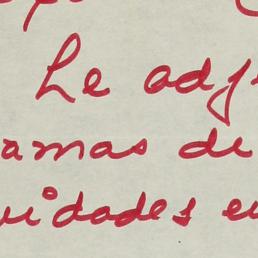 Le adj
amas de
uidades en